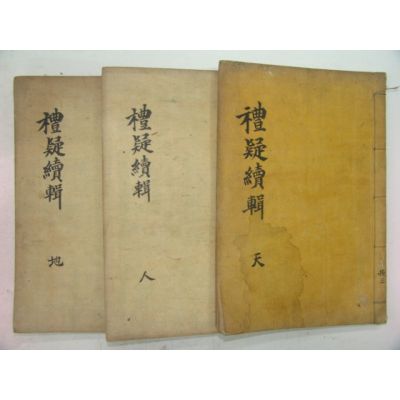 禮疑續輯
天
共三
禮疑續輯
人
禮疑續輯
地